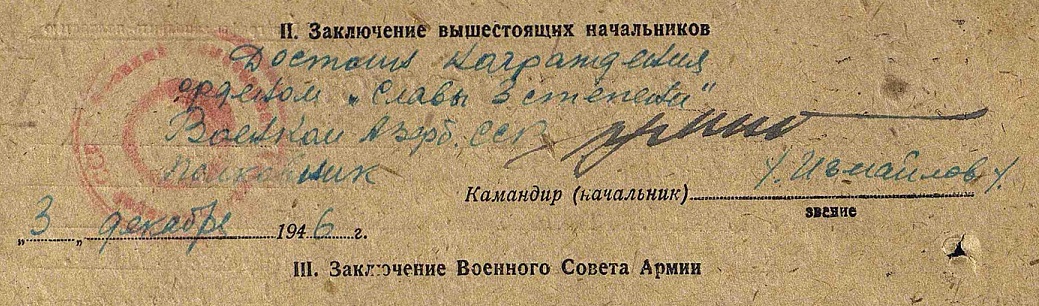 II. Заключение вышестоящих начальников
Достоин награждения
орденом „Славы 3 степени"
Военком Азерб. ССР
Полковник
Командир (начальник) /Измайлов/.
звание
„3„ декабря 1946 г.
III. Заключение Военного Совета Армии